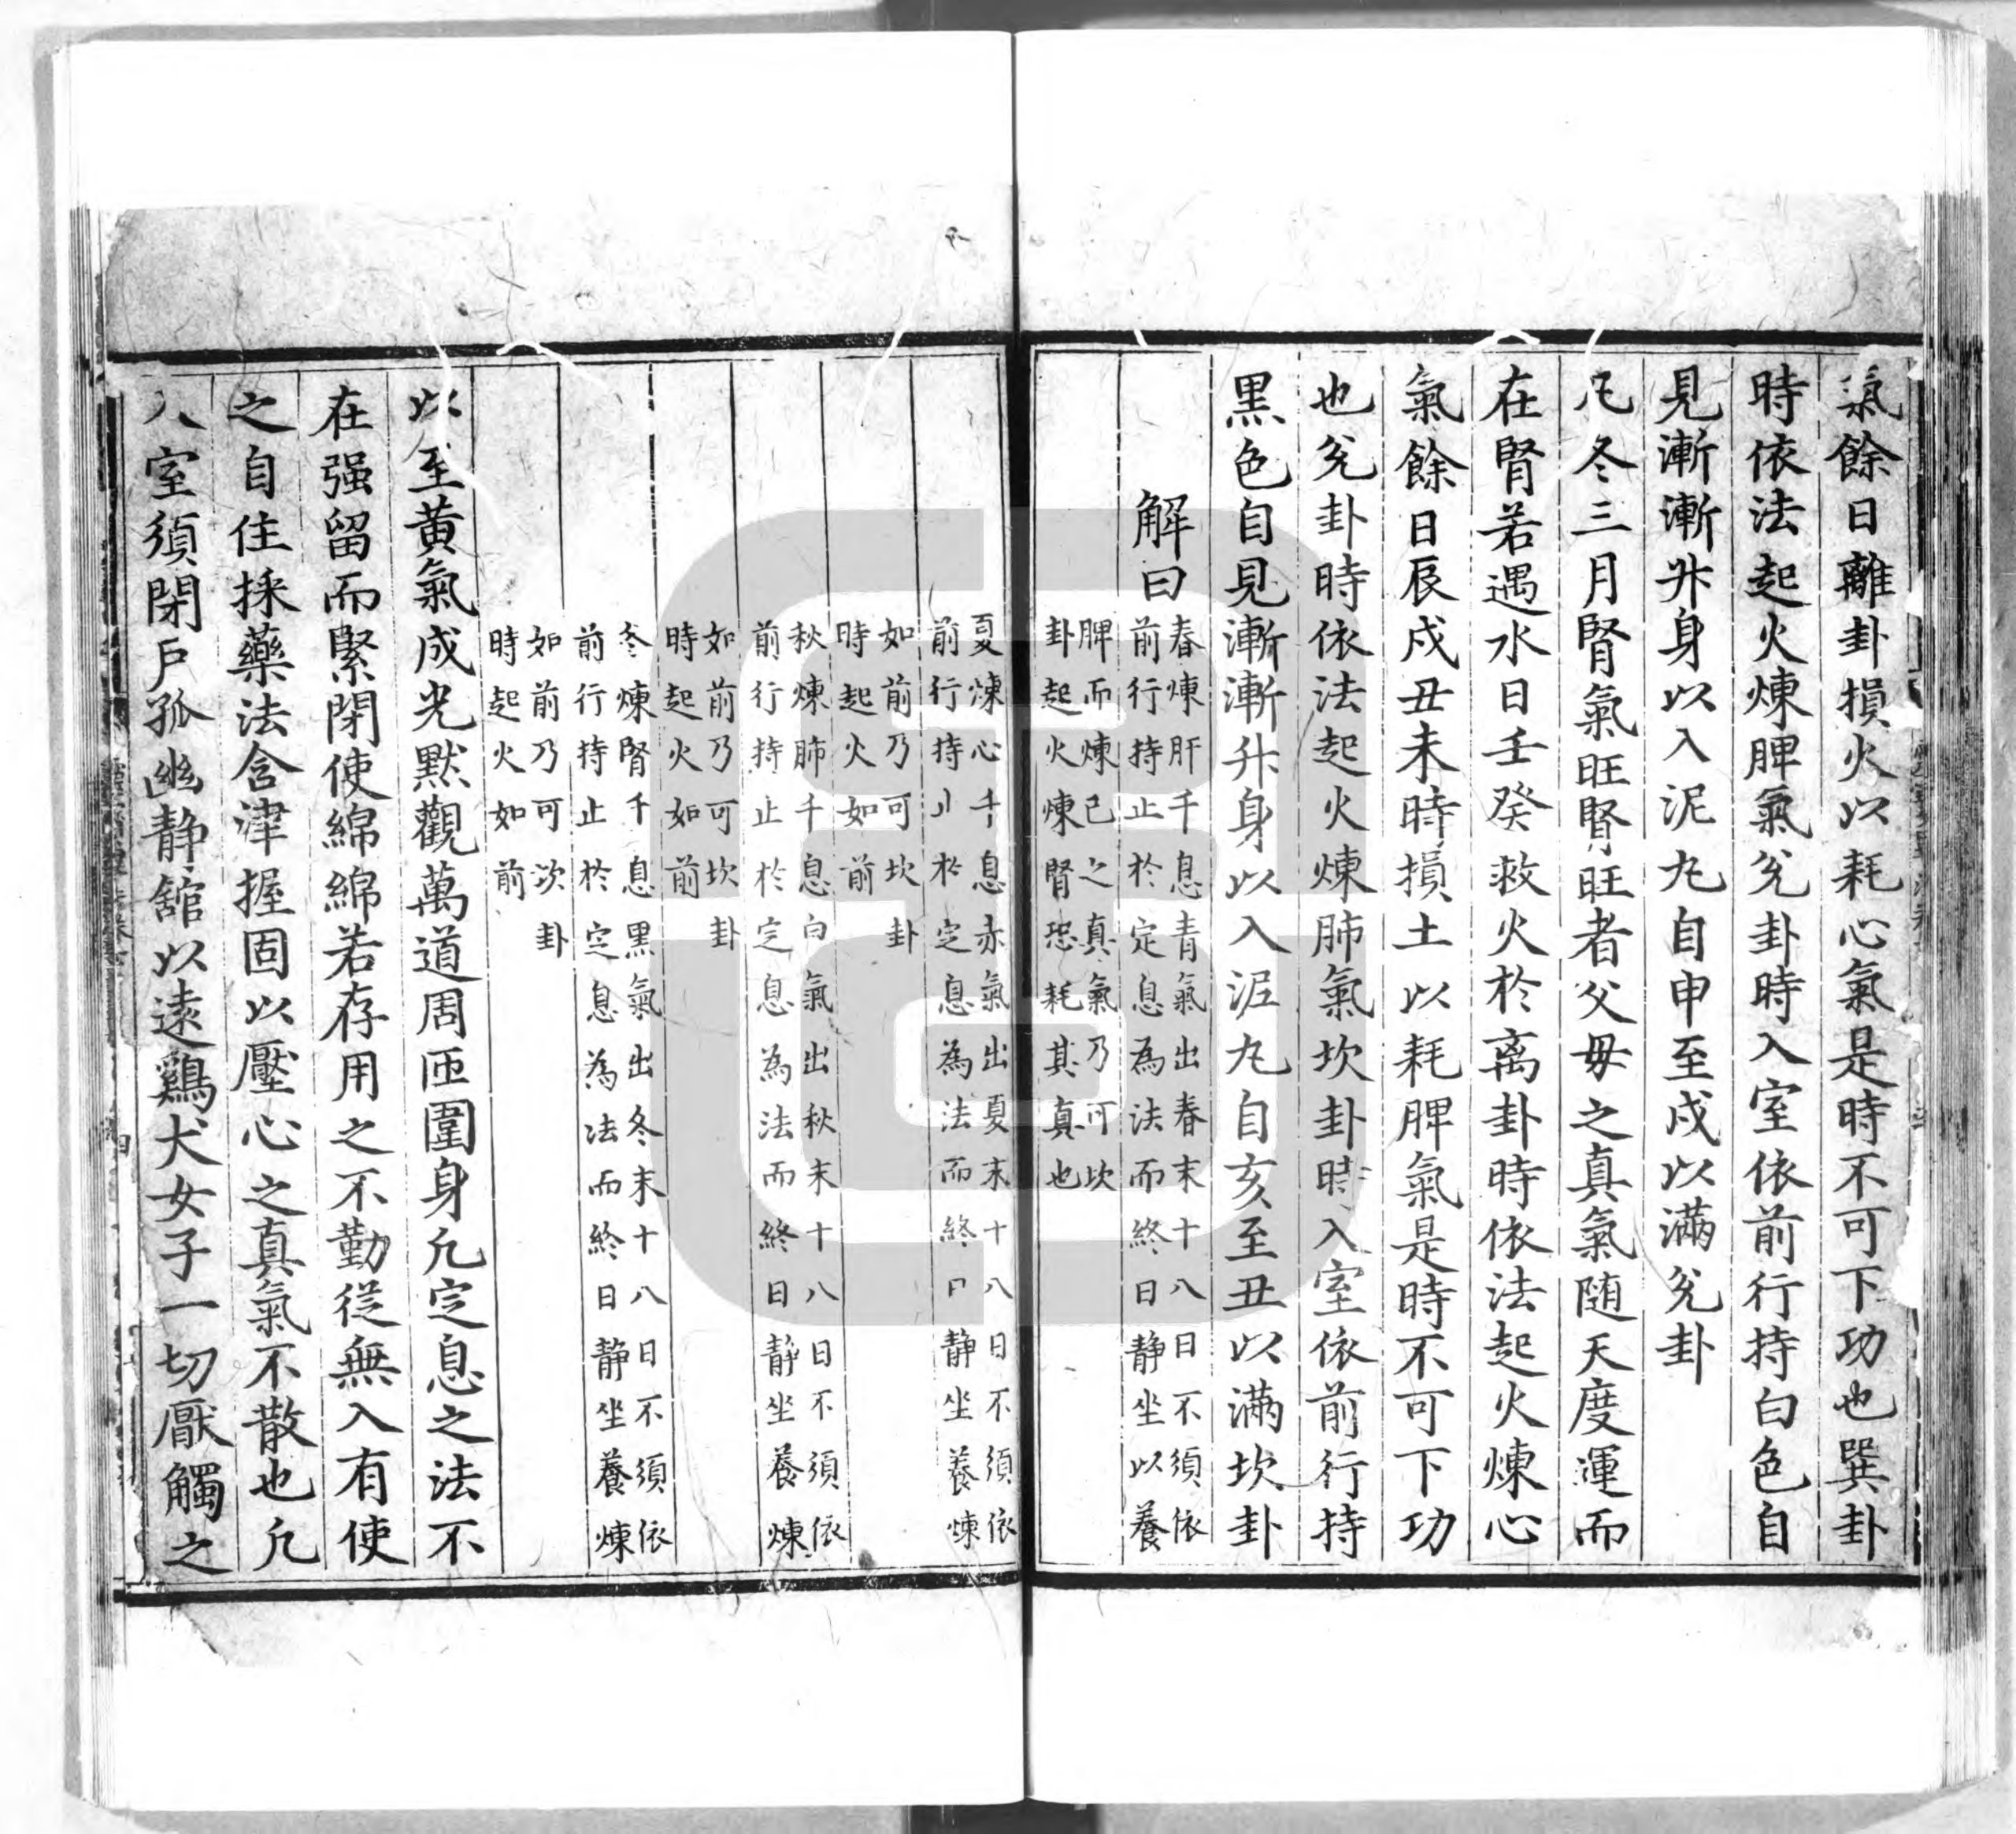 氣餘日離卦損火以耗心氣是時不可下功也巽卦
時依法起火煉脾氣兊卦時入室依前行持白色自
見漸漸升身以入泥丸自申至戍以滿兊卦
凡冬三月腎氣旺腎旺者父毋之真氣随天度運而
在腎若遇水日壬癸救火於离卦時依法起火煉心
氣餘日辰戍丑未時損土以耗脾氣是時不可下功
也兊卦時依法起火煉肺氣坎卦時入室依前行持
黑色自見漸漸升身以入泥丸自亥至丑以滿坎卦
解曰
春煉肝千息青氣出春末十八日不須依
前行持止於定息為法而終日静坐以養
脾而煉已之真氣乃可坎
卦起火煉腎恐耗其真也
夏煉心千息赤氣出夏末十八日不須依
前行持止於定息為法而終日静坐養煉
如前乃可坎卦
時起火如前
秋煉肺千息白氣出秋末十八日不須依
前行持止於定息為法而終日静坐養煉
如前乃可坎卦
時起火如前
冬煉腎千息黑氣出冬末十八日不須依
前行持止於定息為法而終日静坐養煉
如前乃可次卦
時起火如前
以至黄氣成光黙觀萬道周匝圍身凡定息之法不
在强留而緊閉使綿綿若存用之不勤從無入有使
之自住採藥法含津握固以壓心之真氣不散也凡
入室須閉戶孤幽静舘以逺鷄犬女子一切厭觸之